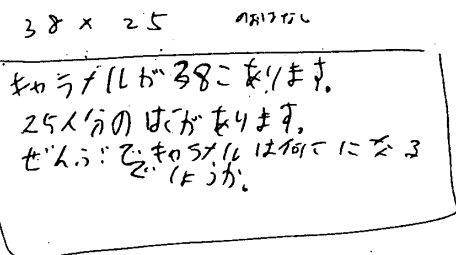 38 × 25 のおはなし
キャラメルが38こあります。
25人分のはこがあります。
ぜんぶでキャラメルは何こになる
でしょうか。